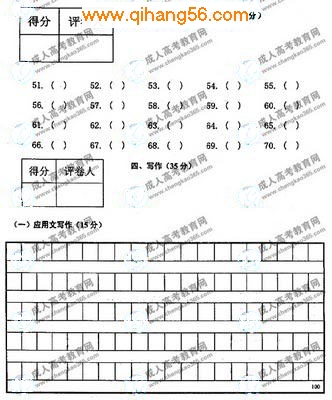 www.qihang56.com
分）
得分 评
51.（ ） 52.（ ） 53.（ ） 54.（ ） 55.（ ）
56.（ ） 57.（ ） 58.（ ） 59.（ ） 60.（ ）
61.（ ） 62.（ ） 63.（ ） 64.（ ） 65.（ ）
66.（ ） 67.（ ） 68.（ ） 69.（ ） 70.（ ）
得分 评卷人
四、写作（35 分）
（一）应用文写作（15 分）
100
成人高考教育网
www.chengkao365.com